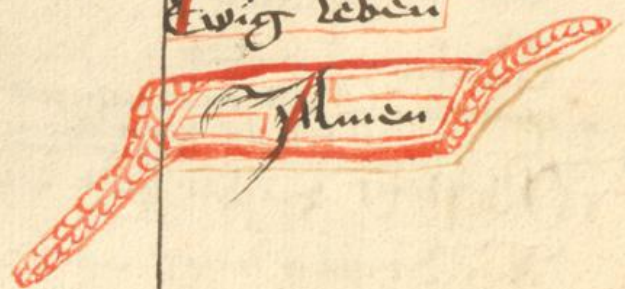 Ewig leben
Amen